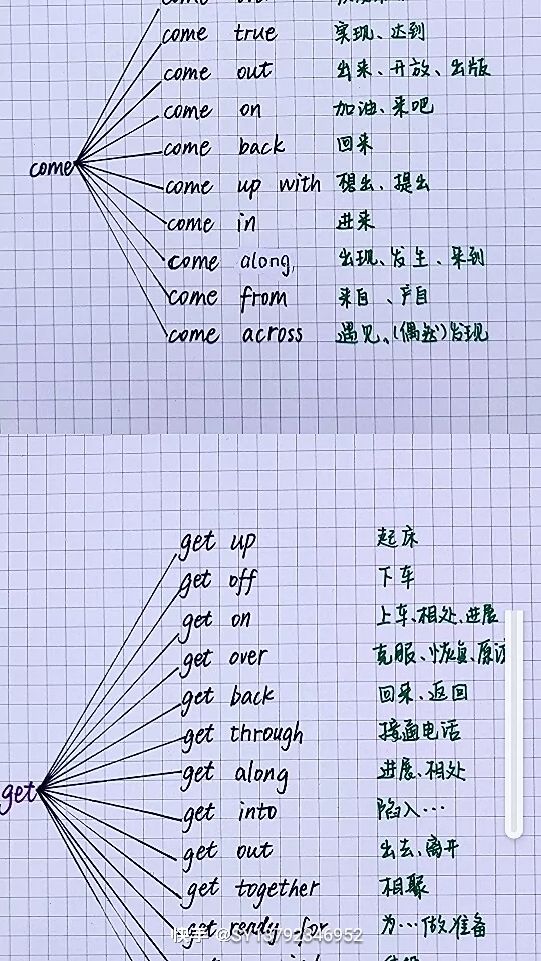 come true 实现、达到
come out 出来、开放、出版
come on 加油、来吧
come back 回来
come
come up with 想出、提出
come in 进来
come along, 出现、发生、来到
come from 来自、产自
come across 遇见、(偶然)发现
get up 起床
get off 下车
get on 上车、相处、进展
get over 克服、恢复、原谅
get back 回来、返回
get through 接通电话
get along 进展、相处
get
get into 陷入…
get out 出去、离开
get together 相聚
get ready for 为…做准备
快手 @SY13792346952